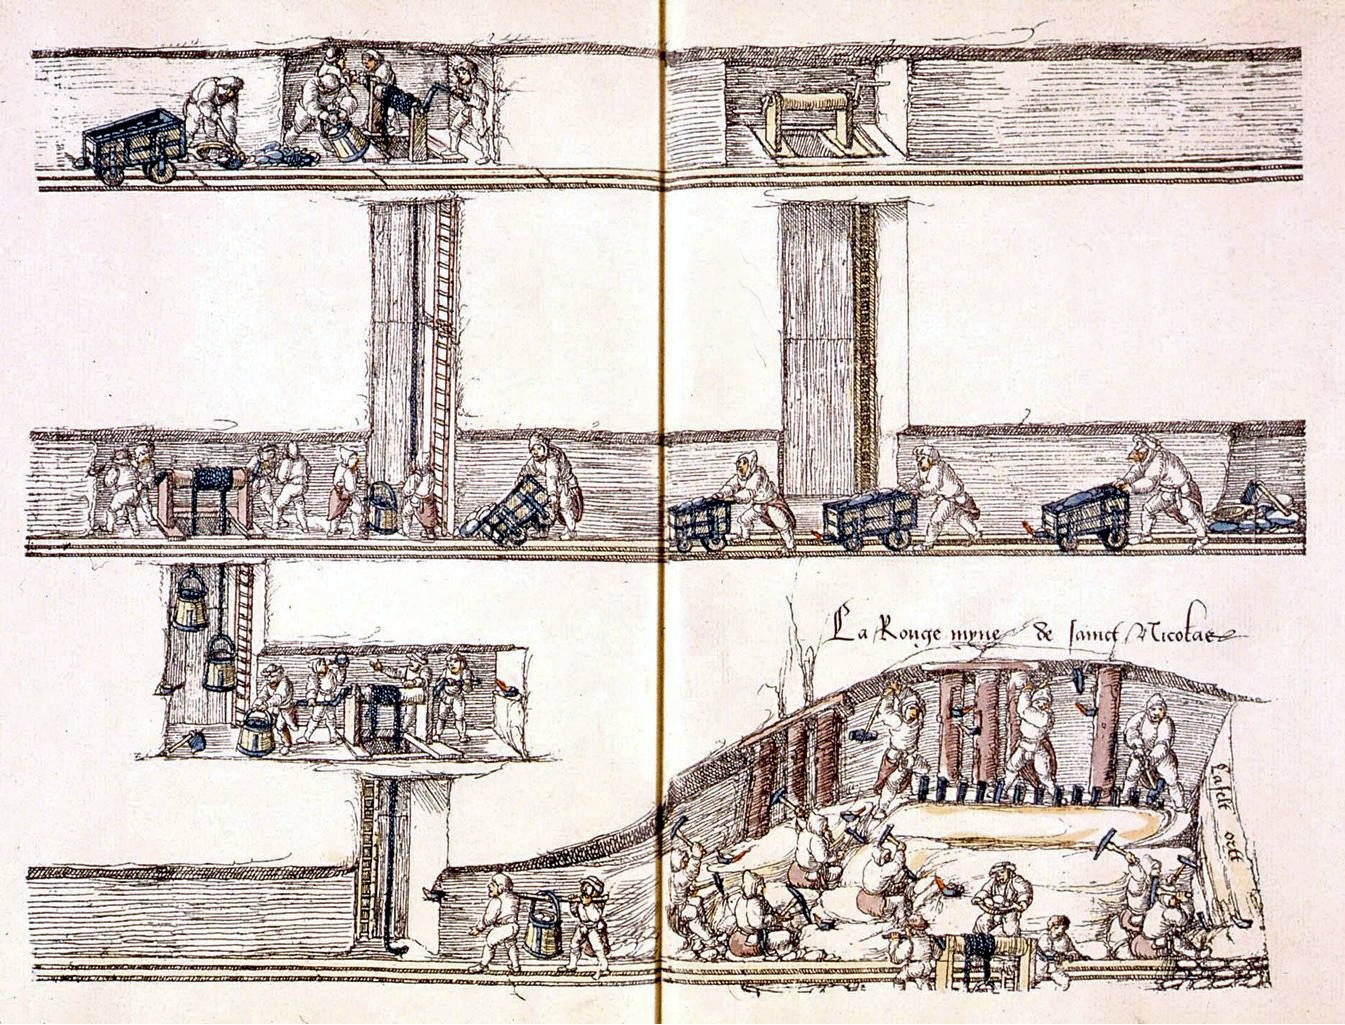 La Rouge myne de sainct Nicolas